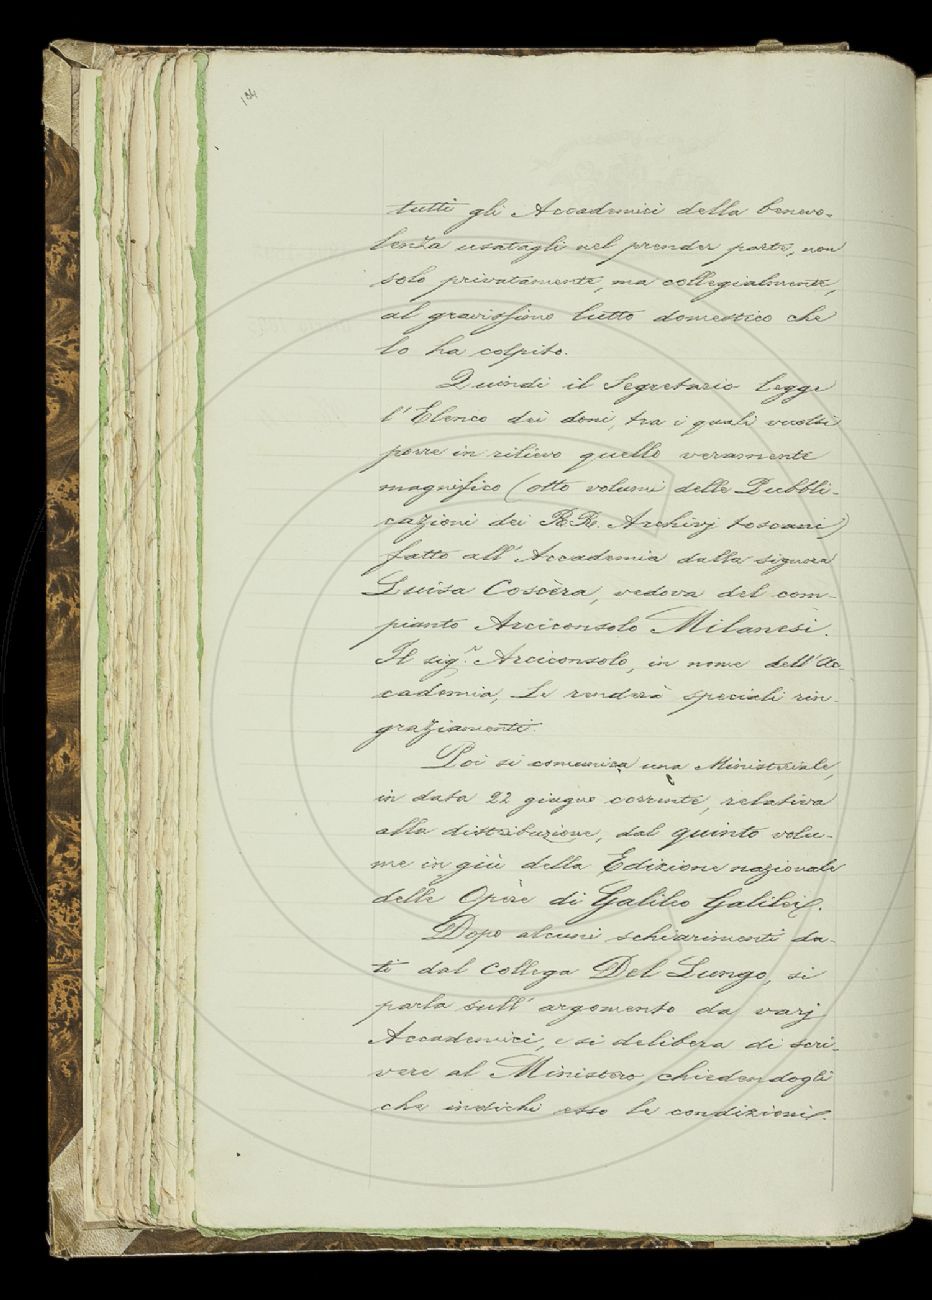 184
tutti gli Accademici della benevo-
lenza usatagli nel prender parte, non
solo privatamente, ma collegialmente,
al gravissimo lutto domestico che
lo ha colpito.
Quindi il Segretario legge
l'Elenco dei doni, tra i quali vuolsi
porre in rilievo quello veramente
magnifico (otto volumi delle Pubbli-
cazioni dei RR. Archivj toscani)
fatto all'Accademia dalla signora
Luisa Coscèra, vedova del com-
pianto Arciconsolo Milanesi.
Il sigr. Arciconsolo, in nome dell'Ac-
cademia, Le renderà speciali rin-
graziamenti.
Poi si comunica una Ministeriale,
in data 22 giugno corrente, relativa
alla distribuzione, dal quinto volu-
me in giù della Edizione nazionale
delle Opere di Galileo Galilei.
Dopo alcuni schiarimenti da-
ti dal Collega Del Lungo, si
parla sull'argomento da varj
Accademici, e si delibera di scri-
vere al Ministero, chiedendogli
che indichi esso le condizioni.